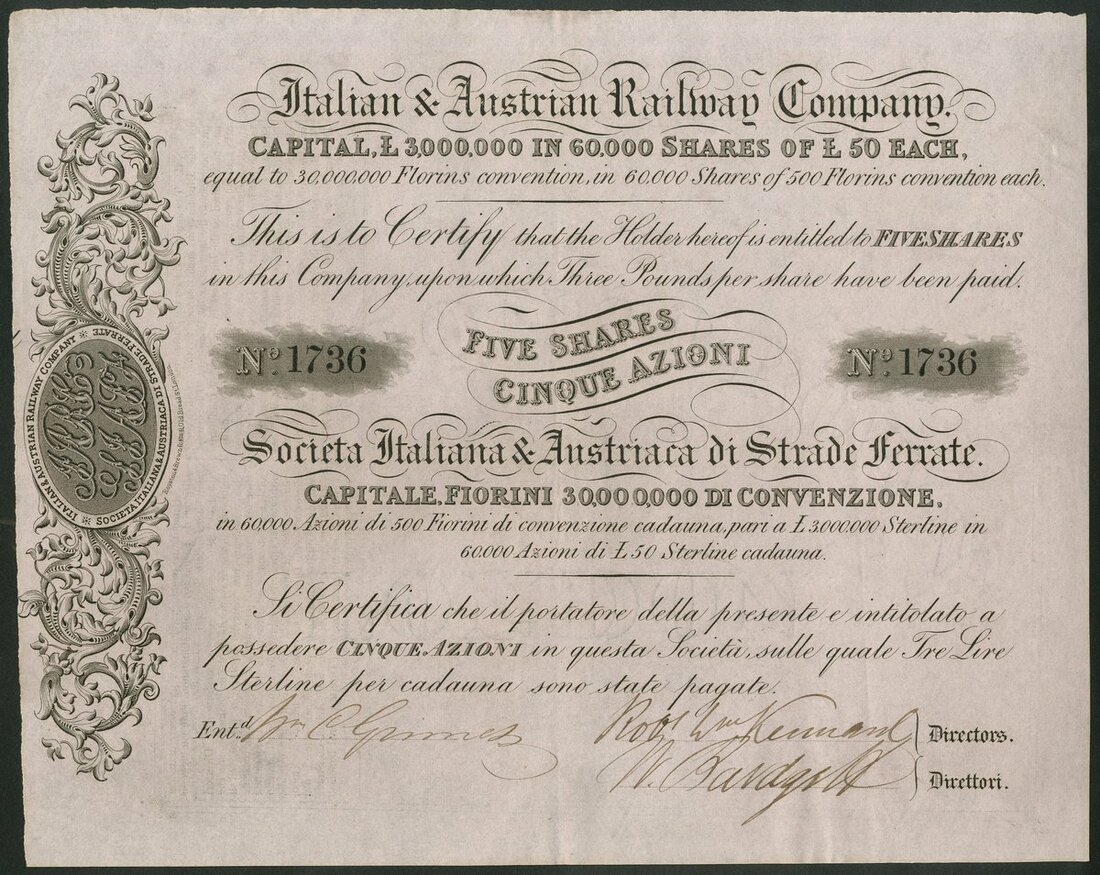 Italian & Austrian Railway Company.
CAPITAL, Ł 3,000,000 IN 60,000 SHARES OF Ł 50 EACH,
equal to 30,000,000 Florins convention, in 60,000 Shares of 500 Florins convention each.
This is to Certify that the Holder hereof is entitled to FIVE SHARES
in this Company, upon which Three Pounds per share have been paid.
FIVE SHARES
CINQUE AZIONI
No. 1736
No. 1736
Societa Italiana & Austriaca di Strade Ferrate.
CAPITALE, FIORINI 30,000,000 DI CONVENZIONE,
in 60,000 Azioni di 500 Fiorini di convenzione cadauna, pari a Ł 3,000,000 Sterline in
60,000 Azioni di Ł 50 Sterline cadauna.
Si Certifica che il portatore della presente e intitolato a
possedere CINQUE AZIONI in questa Società, sulle quale Tre Lire
Sterline per cadauna sono state pagate.
Ent.d Wm C. Grimes
Robt Wm Kennard
Directors.
W. Bardgett
Direttori.
ITALIAN & AUSTRIAN RAILWAY COMPANY
SOCIETA ITALIANA & AUSTRIACA DI STRADE FERRATE